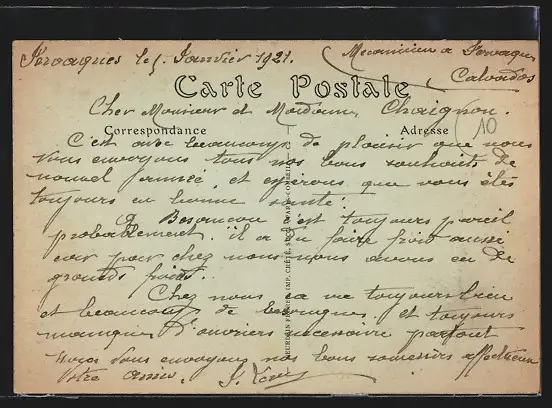 Fervaques le 5 Janvier 1921.
Mecanicien a Fervaques
Calvados
Carte Postale
Cher Monsieur et Madame Chaignon.
Correspondance
Adresse
10
C'est avec beaucoups de plaisir que nous
vous envoyons tous nos bons souhaits de
nouvel année, et espérons que vous êtes
toujours en bonne santé.
A Besancon c'est toujours pareil
probablement. il a du faire froid aussi
car pour chez nous nous avons eu de
grands froids.
Chez nous ca va toujours bien
et beaucoup de besognes. et toujours
manque d'ouvriers necessaire partout
Nous vous envoyons nos bons souvenirs affectueux
Votre amie.